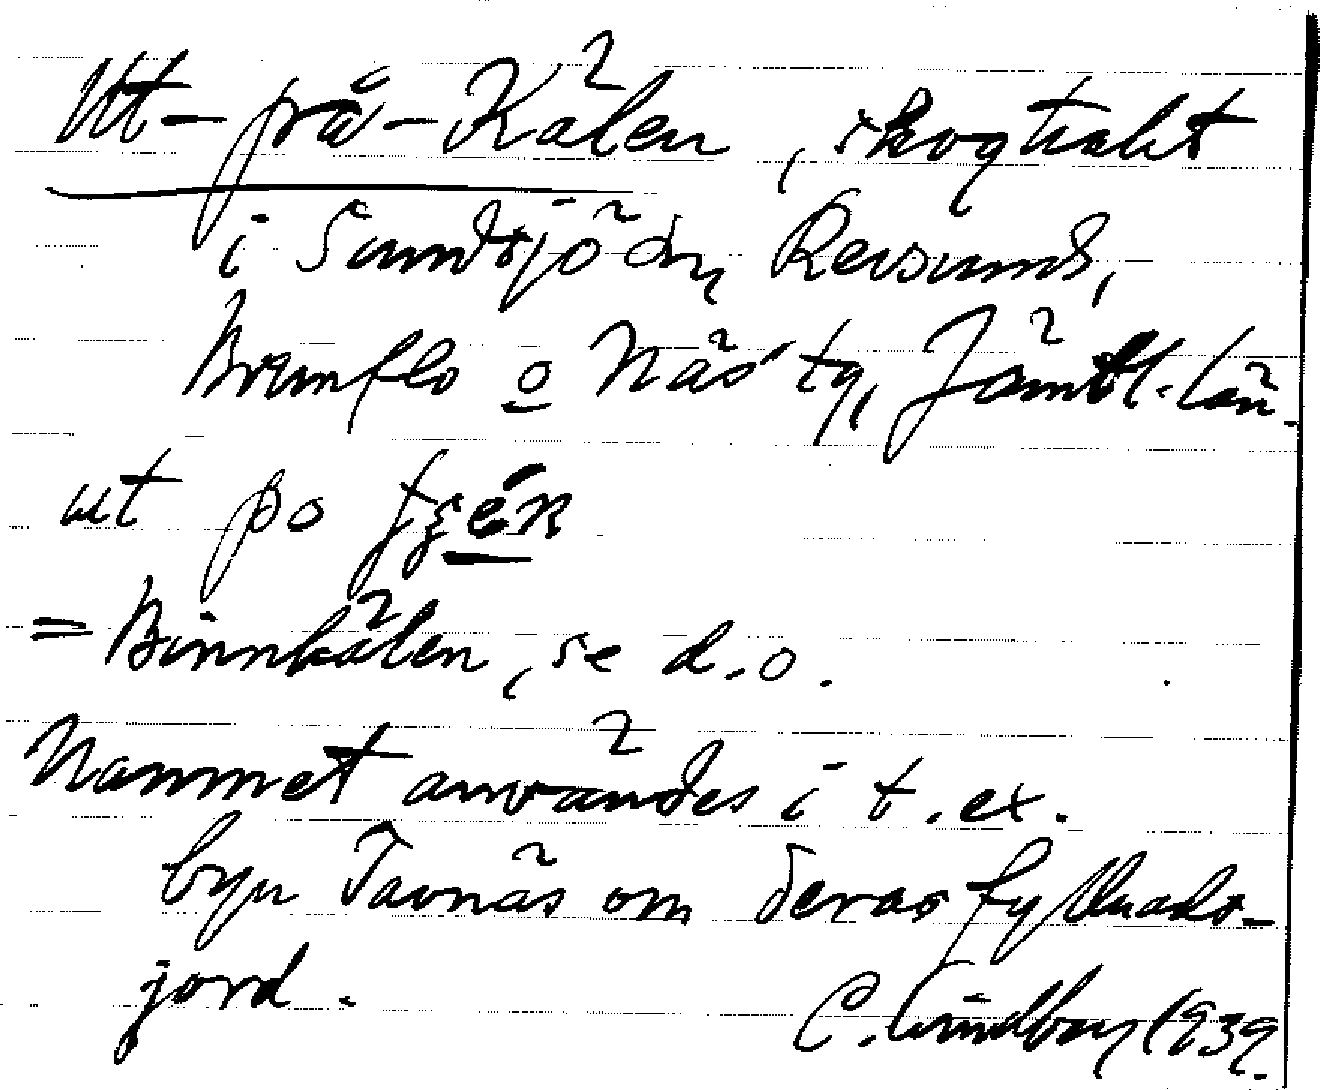 Ut-på-Kälen, skogtrakt
i Sundsjö sn, Revsunds,
Brunflo o Näs tg, Jämtl. län.
ut po
= Binnkälen, se d.o.
Namnet användes i t.ex.
byn Tavnäs om deras fyllnads-
jord.
C. Lindberg 1939.